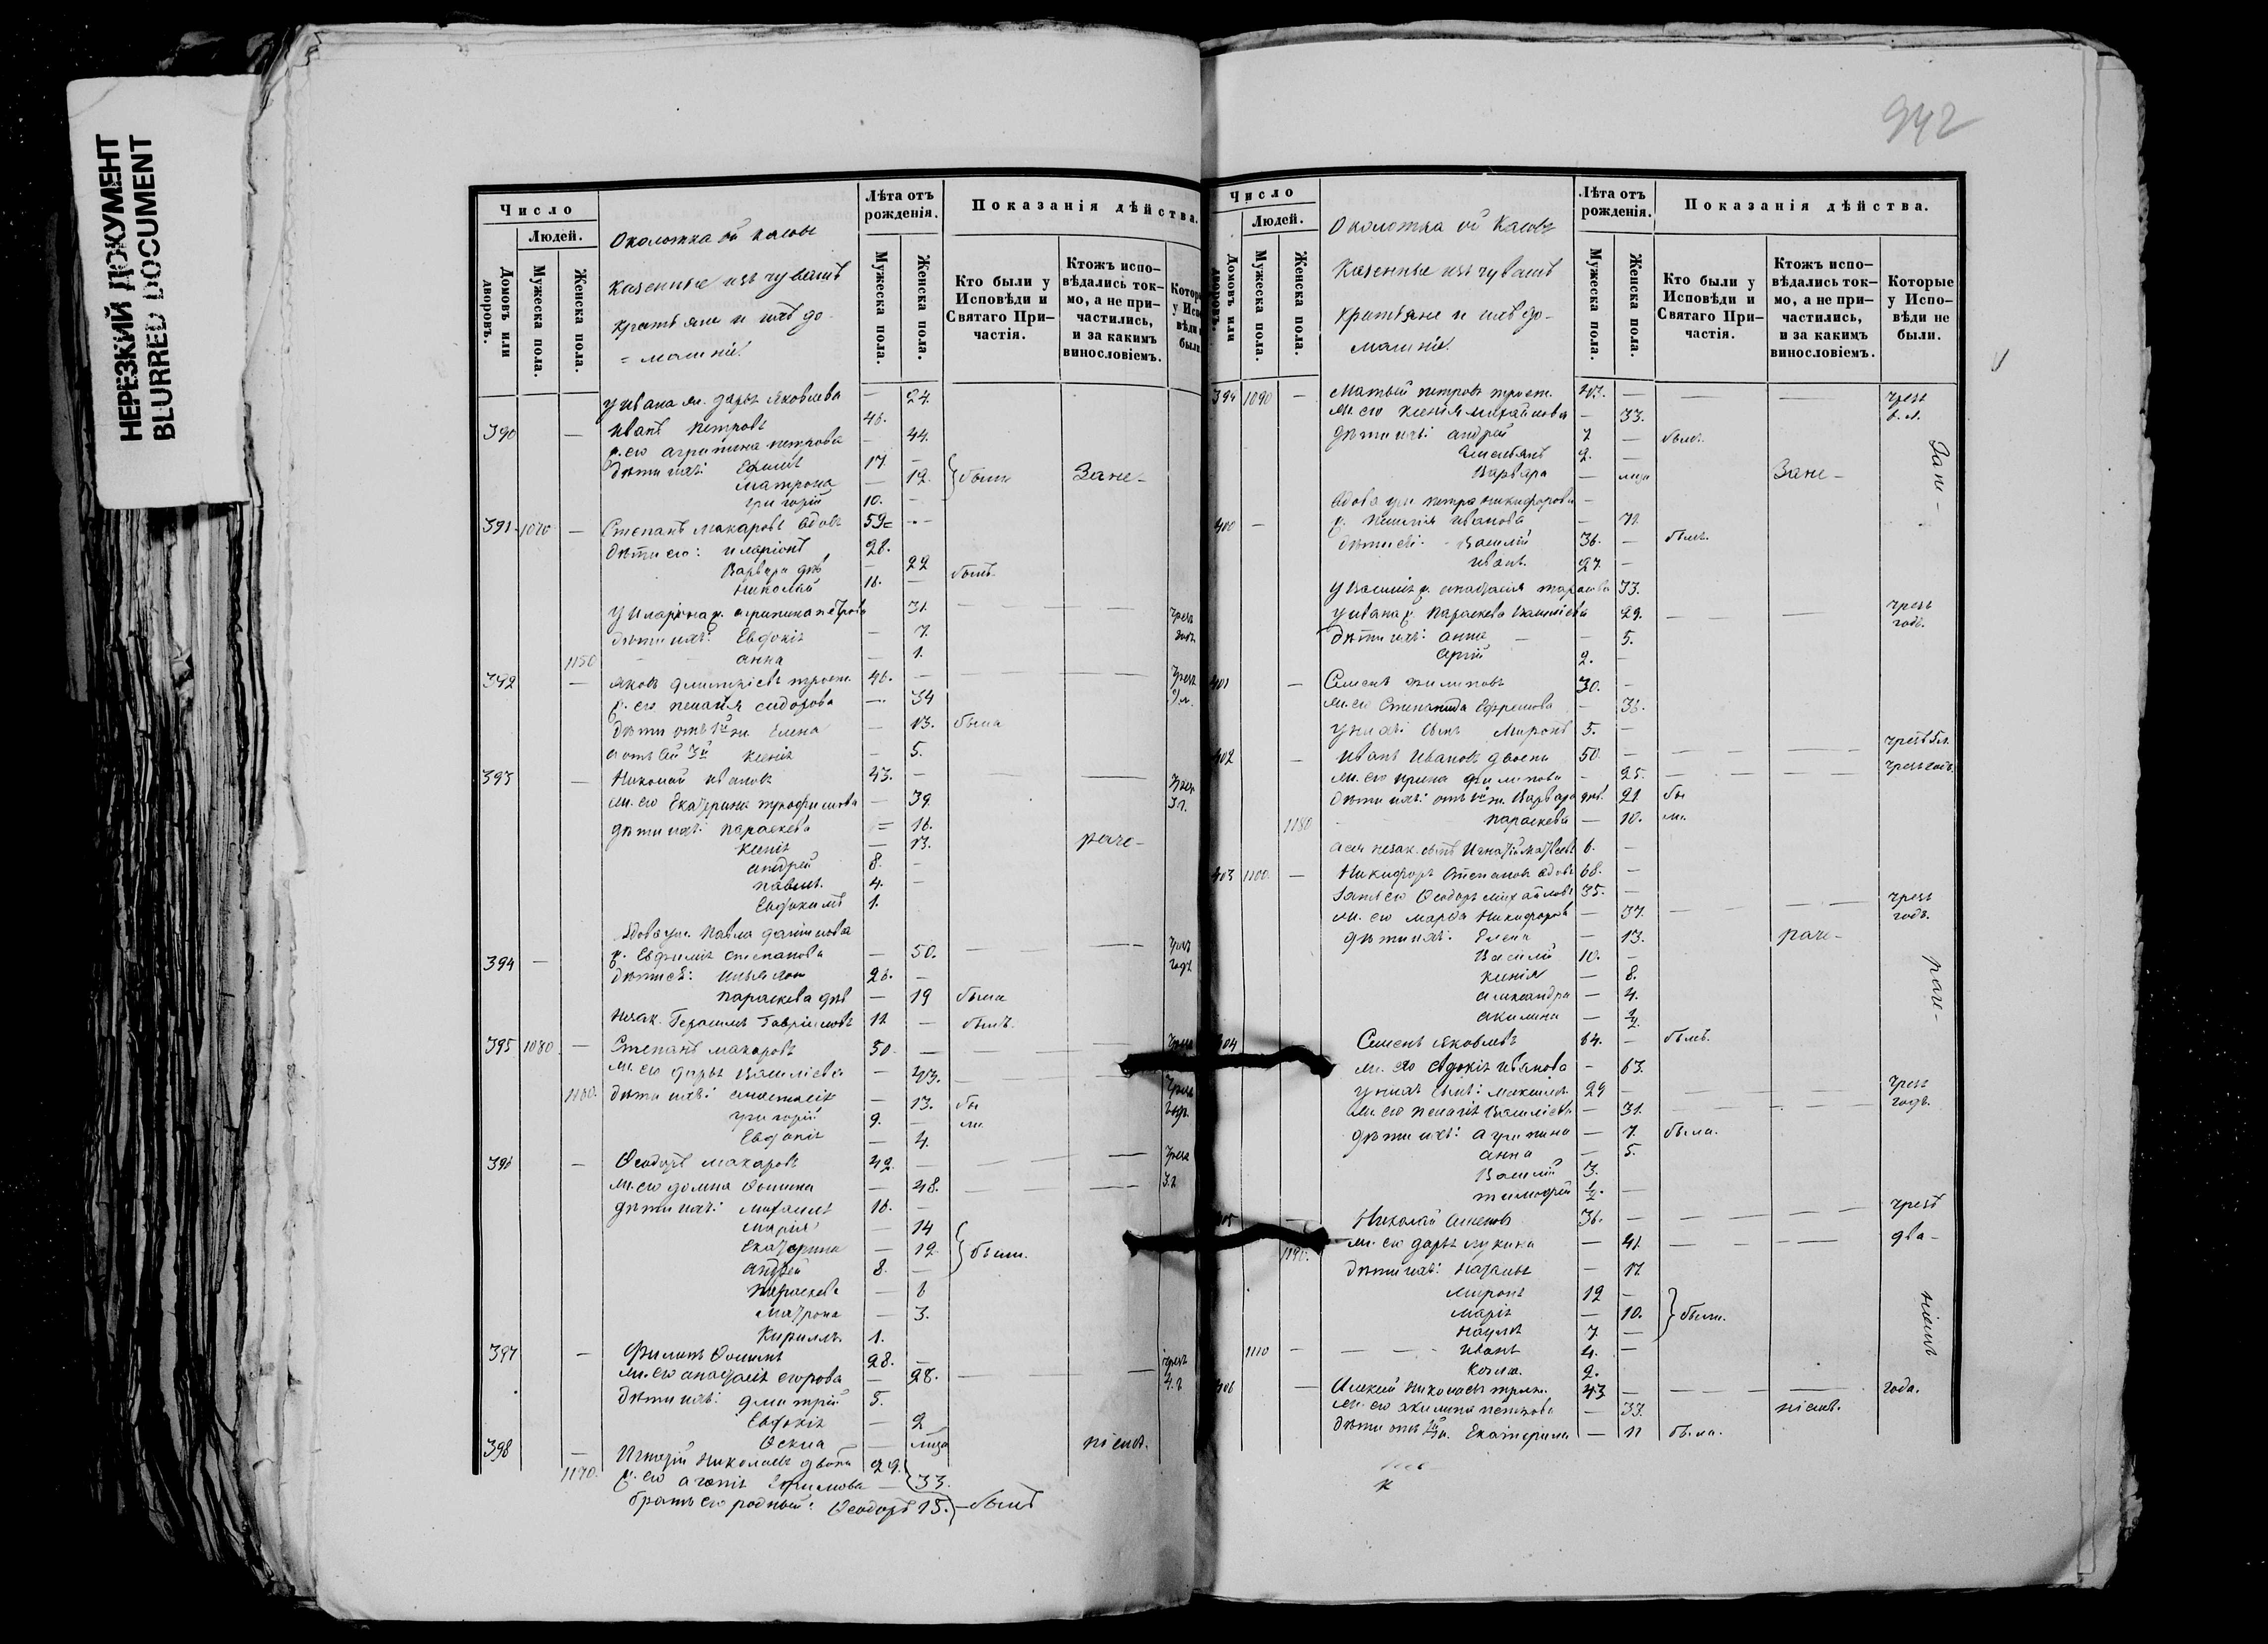 НЕРЕЗКИЙ ДОКУМЕНТ
BLURRED DOCUMENT
942
Число
Людей.
Домовъ или дворовъ.
Мужеска пола.
Женска пола.
Околотка
казенные изъ чувашъ
крестьяне и ихъ до-
=машніе.
Лѣта отъ рожденія.
Мужеска пола.
Женска пола.
Показанія дѣйства.
Кто были у Исповѣди и Святаго При-частія.
Ктожъ испо-вѣдались ток-мо, а не при-частились, и за какимъ винословіемъ.
у Ивана ж. Дарья Яковлева — 24.
390 — Иванъ Петровъ 46.
ж. его Агрипина Петрова — 44.
дѣти ихъ: Ефимъ 17. —
Матрона — 12. были Зане-
Григорій 10. —
391 1070 — Степанъ Макаровъ вдовъ 59
дѣти его: Иларіонъ 28.
Варвара дѣв — 22
Николай 16. — былъ.
у Иларіона ж. Агрипина Петрова 31. чрезъ годъ.
дѣти ихъ: Евдокія — 7.
1150 Анна — 1.
392 — Яковъ Димитріевъ троеж. 46. — чрезъ
ж. его Пелагія Сидорова — 34
дѣти отъ ж. Елена — 13. была
Ксенія — 5.
393 — Николай Ивановъ 43. — чрезъ 3 г.
ж. его Екатерина Трофимова — 39.
дѣти ихъ: Параскева — 16.
Ксенія — 13. раче-
Андрей 8. —
Павелъ 4. —
Евдокимъ 1.
вдова ум. Павла Данилова
394 — ж. Евфимія Степанова — 50. чрезъ годъ
дѣти ея: 26. —
Параскева дѣв — 19 была
Незак. Герасимъ Гавриловъ 12 — былъ.
395 1080 — Степанъ Макаровъ 50. —
ж. его Дарья Василіева — 43.
1160. дѣти ихъ: Анастасія — 13. бы
Григорій 9. — ли
Евдокія — 4.
396 — Ѳеодоръ Макаровъ 42. — чрезъ
ж. его Домна Ѳомина — 48. 3 г
дѣти ихъ: Михаилъ 16. —
Марія — 14
Екатерина — 12. были.
Андрей 8. —
Параскева — 6
Матрона — 3.
Кирилъ 1.
397 — Филипъ Ѳоминъ 28. — чрезъ
ж. его Анастасія Егорова — 28. 4. г
дѣти ихъ: Дмитрій 5.
Евдокія — 2
Ѳекла — нѣсяц ніемъ.
398 — Игнатій Николаевъ двоеж 29.
1170. ж. его Агапія Ефимова — 33.
братъ его родный: Ѳеодоръ 15. — былъ
Число
Людей.
Домовъ или дворовъ.
Мужеска пола.
Женска пола.
Околотка
Казенные изъ чувашъ
крестьяне и ихъ до-
машніе.
Лѣта отъ рожденія.
Мужеска пола.
Женска пола.
Показанія дѣйства.
Кто были у Исповѣди и Святаго При-частія.
Ктожъ испо-вѣдались ток-мо, а не при-частились, и за какимъ винословіемъ.
Которые у Испо-вѣди не были.
1090 — Матвѣй Петровъ троеж. 43. — чрезъ
ж. его Ксенія Михайлова — 33.
дѣти ихъ: Андрей 7 — былъ. Зане-
Емеліянъ 2. —
Варвара — Зане-
вдова ум. Петра Никифорова —
400 — ж. Пелагія Иванова — 71.
дѣти ея: Василій 36. — былъ.
Иванъ 27. —
у Василія ж. Анастасія 33.
у Ивана ж. Параскева Василіева 29. чрезъ годъ.
дѣти ихъ: Анна — 5.
Сергій 2. —
401 — Семенъ Филиповъ 30. —
ж. его Степанида Ефремова — 36.
у нихъ сынъ Миронъ 5. —
402 — Иванъ Ивановъ двоеж 50. — чрезъ
ж. его Ирина Филипова — 25. чрезъ годъ.
дѣти ихъ: отъ ж. Варвара дѣв. 21. бы
1180 Параскева — 10. ли.
незак. сынъ Игнатій Матвѣевъ 6. —
403 1100. — Никифоръ Степановъ вдовъ 68. —
зять его Ѳеодоръ Михайловъ 35. — чрезъ
ж. его Марѳа Никифорова — 37. годъ.
дѣти ихъ: Елена — 13. раче-
Василій 10. — раче-
Ксенія — 8.
Александра — 4.
Акилина — ½.
404 Семенъ Яковлевъ 64. — былъ.
ж. его Евдокія Иванова — 63.
у нихъ сынъ: Максимъ 29 — чрезъ
ж. его Пелагія Василіева — 31. годъ.
дѣти ихъ: Агрипина — 7. была.
Анна — 5.
Василій 3.
Тимофей ½. —
405 — Николай Семеновъ 36. — чрезъ
1190. ж. его Дарья Лукина — 41. два-
дѣти ихъ: Наталья — 17.
Миронъ 12 —
Марія — 10. были.
Наумъ 7. — ніемъ
1110 — Иванъ 4. —
Козма. 2.
406 — Алексѣй Николаевъ троеж. 43 — года.
ж. его Акилина Петрова — 33. ніемъ.
дѣти отъ ж. Екатерина — 11 была.